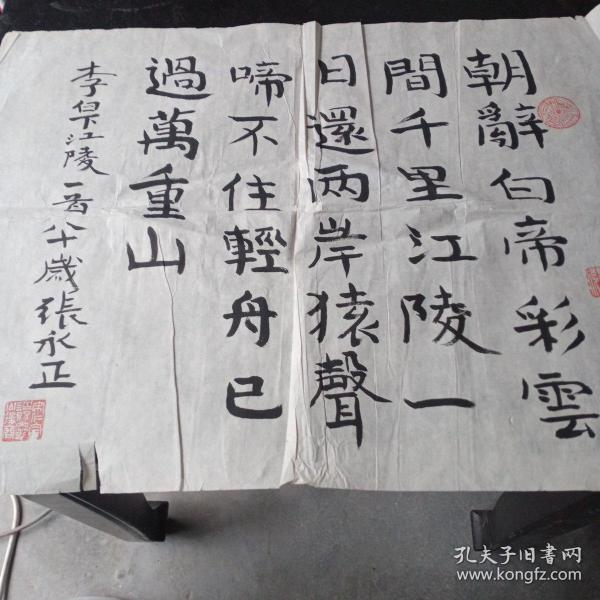 朝辭白帝彩雲
間千里江陵一
日還两岸猿聲
啼不住輕舟已
過萬重山
李白下江陵一首八十歲張永正
孔夫子旧书网
www.kongfz.com